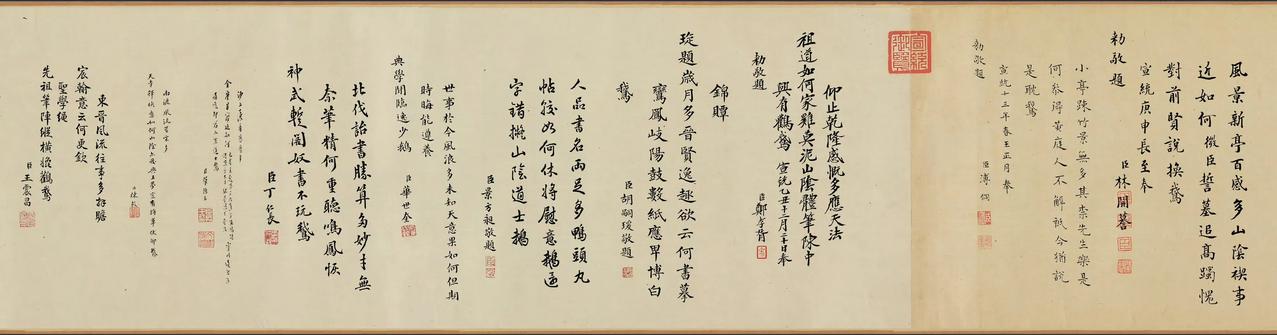 風景新亭百感多山陰禊事
近如何微臣誓墓追高躅愧
對前賢說換鵞
宣統庚申長至奉
勅敬題
臣林開謩
小亭疎竹景無多其柰先生樂是
何祭得黃庭人不解祗今猶說
是耽鵞
宣統十三年春王正月奉
勅敬題
臣溥僩
宣統御覽
仰止乾隆感慨多應天法
祖道如何家雞莫泥山陰體筆陳中
興有鸛鵞
宣統乙丑十二月二十日奉
勅敬題
臣鄭孝胥
錦贉
琁題歲月多晉賢逸趣欲云何書摹
鸞鳳岐陽鼓數紙應早博白
鵞
臣胡嗣瑗敬題
人品書名兩足多鴨頭丸
帖較如何休將慰意鵝通
字錯擬山陰道士鵝
臣景方昶敬題
世事於今風浪多未知天意果如何但期
時晦能遵養
典學閒臨逸少鵝
臣華世奎
北伐詒書勝算多妙手無
秦華精何重聽鳴鳳恢
神武暫閣奴書不玩鵞
臣丁仁長
東晉風流往事多招膽
宸翰意云何更欽
聖學繩
先祖筆陣縱橫撥鸛鵞
臣王震昌